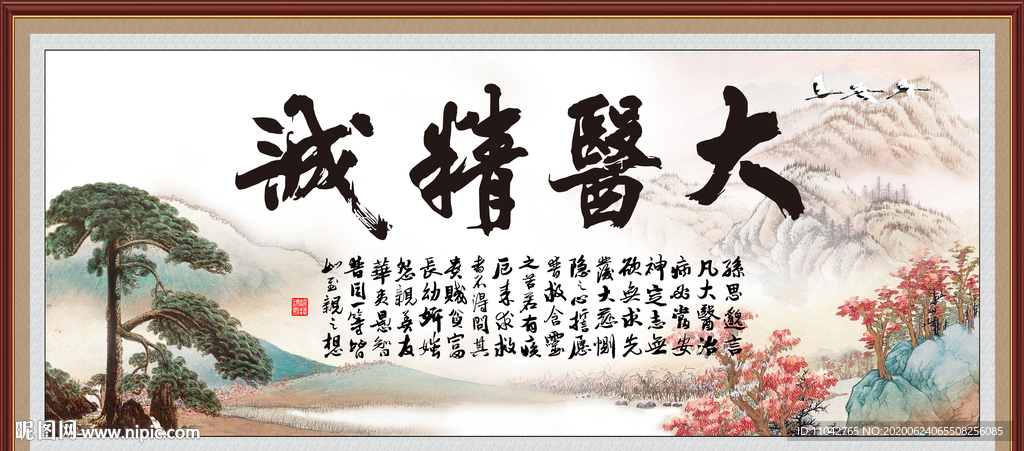 大醫精誠
孫思邈言
凡大醫治
病必當安
神定志無
欲無求先
發大慈惻
隐之心誓愿
普救含靈
之苦若有疾
厄来求救
者不得問其
贵賤貧富
長幼妍媸
怨親善友
華夷愚智
普同一等皆
如至親之想
昵图网 www.nipic.com
ID:11042765 NO:20200624065508256085